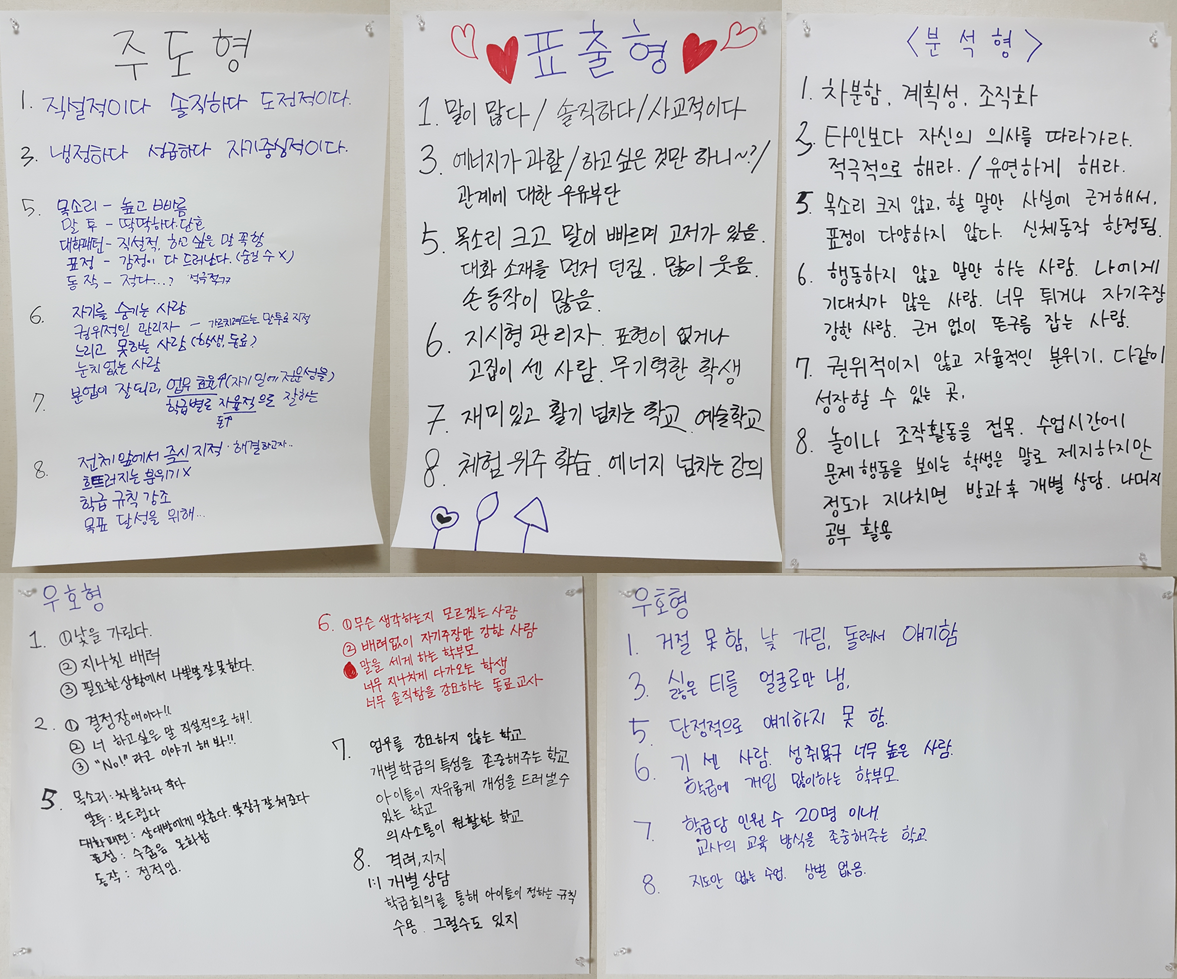 주도형
1. 직설적이다 솔직하다 도전적이다.
3. 냉정하다 성급하다 자기중심적이다.
5. 목소리 - 높고 빠름
말투 - 딱딱하다. 단호
대화패턴 - 직설적, 하고 싶은 말 꼭 함
표정 - 감정이 다 드러난다. (숨길 수 X)
동작 - 적다...?
6. 자기를 숨기는 사람
권위적인 관리자 - 가르치려드는 말투로 지적
느리고 못하는 사람 (학생, 동료?)
눈치 없는 사람
7. 분업이 잘 되고, 업무 효율↑ (자기 일에 전문성을)
학급별로 자율적으로 잘하는
8. 전체 앞에서 즉시 지적·해결하고자..
흐트러지는 분위기 X
학급 규칙 강조
목표 달성을 위해...
표출형
1. 말이 많다 / 솔직하다 / 사교적이다
3. 에너지가 과함 / 하고 싶은 것만 하니~? /
관계에 대한 우유부단
5. 목소리 크고 말이 빠르며 고저가 있음.
대화 소재를 먼저 던짐. 많이 웃음.
손동작이 많음.
6. 지시형 관리자. 표현이 없거나
고집이 센 사람. 무기력한 학생
7. 재미있고 활기 넘치는 학교 예술학교
8. 체험 위주 학습. 에너지 넘치는 강의
<분석형>
1. 차분함. 계획성. 조직화
3. 타인보다 자신의 의사를 따라가라.
적극적으로 해라. / 유연하게 해라.
5. 목소리 크지 않고, 할 말만 사실에 근거해서.
표정이 다양하지 않다. 신체동작 한정됨.
6. 행동하지 않고 말만 하는 사람. 나에게
기대치가 많은 사람. 너무 튀거나 자기주장
강한 사람. 근거 없이 뜬구름 잡는 사람.
7. 권위적이지 않고 자율적인 분위기. 다같이
성장할 수 있는 곳.
8. 놀이나 조작활동을 접목. 수업시간에
문제 행동을 보이는 학생은 말로 제지하지만
정도가 지나치면 방과후 개별 상담. 나머지
공부 활용
우호형
1. ① 낯을 가린다.
② 지나친 배려
③ 필요한 상황에서 나쁜말 잘 못한다.
2. ① 결정장애이다!!
② 너 하고싶은 말 직설적으로 해!
③ "No!" 라고 이야기 해 봐!!
5. 목소리 : 차분하다 작다
말투 : 부드럽다
대화패턴 : 상대방에게 맞춘다. 맞장구 잘 쳐준다
표정 : 수줍음 온화함
동작 : 정적임.
6. ① 무슨 생각하는지 모르겠는 사람
② 배려없이 자기주장만 강한 사람
말을 세게 하는 학부모
너무 지나치게 다가오는 학생
너무 솔직함을 강요하는 동료교사
7. 업무를 강요하지 않는 학교
개별학급의 특성을 존중해주는 학교
아이들이 자유롭게 개성을 드러낼 수
있는 학교
의사소통이 원활한 학교
8. 격려, 지지
1:1 개별 상담
학급회의를 통해 아이들이 정하는 규칙
수용. 그럴수도 있지
우호형
1. 거절 못 함, 낯 가림, 돌려서 얘기함
3. 싫은 티를 얼굴로만 냄.
5. 단정적으로 얘기하지 못 함.
6. 기 센 사람. 성취욕구 너무 높은 사람.
학급에 개입 많이하는 학부모
7. 학급당 인원 수 20명 이내
교사의 교육 방식을 존중해주는 학교.
8. 지도안 없는 수업. 상벌 없음.